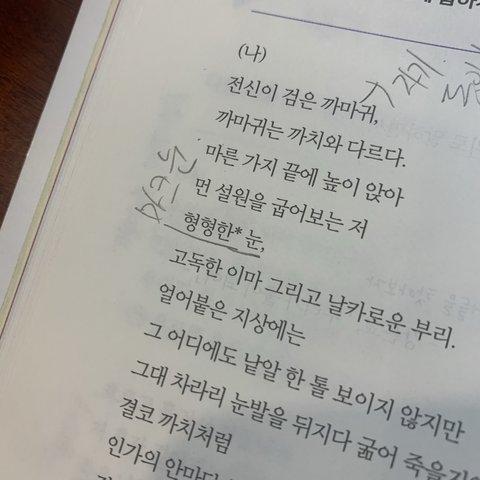 (나)
전신이 검은 까마귀,
까마귀는 까치와 다르다.
마른 가지 끝에 높이 앉아
먼 설원을 굽어보는 저
형형한* 눈,
고독한 이마 그리고 날카로운 부리.
얼어붙은 지상에는
그 어디에도 낱알 한 톨 보이지 않지만
그대 차라리 눈발을 뒤지다 굶어 죽을지
결코 까치처럼
인가의 안마당